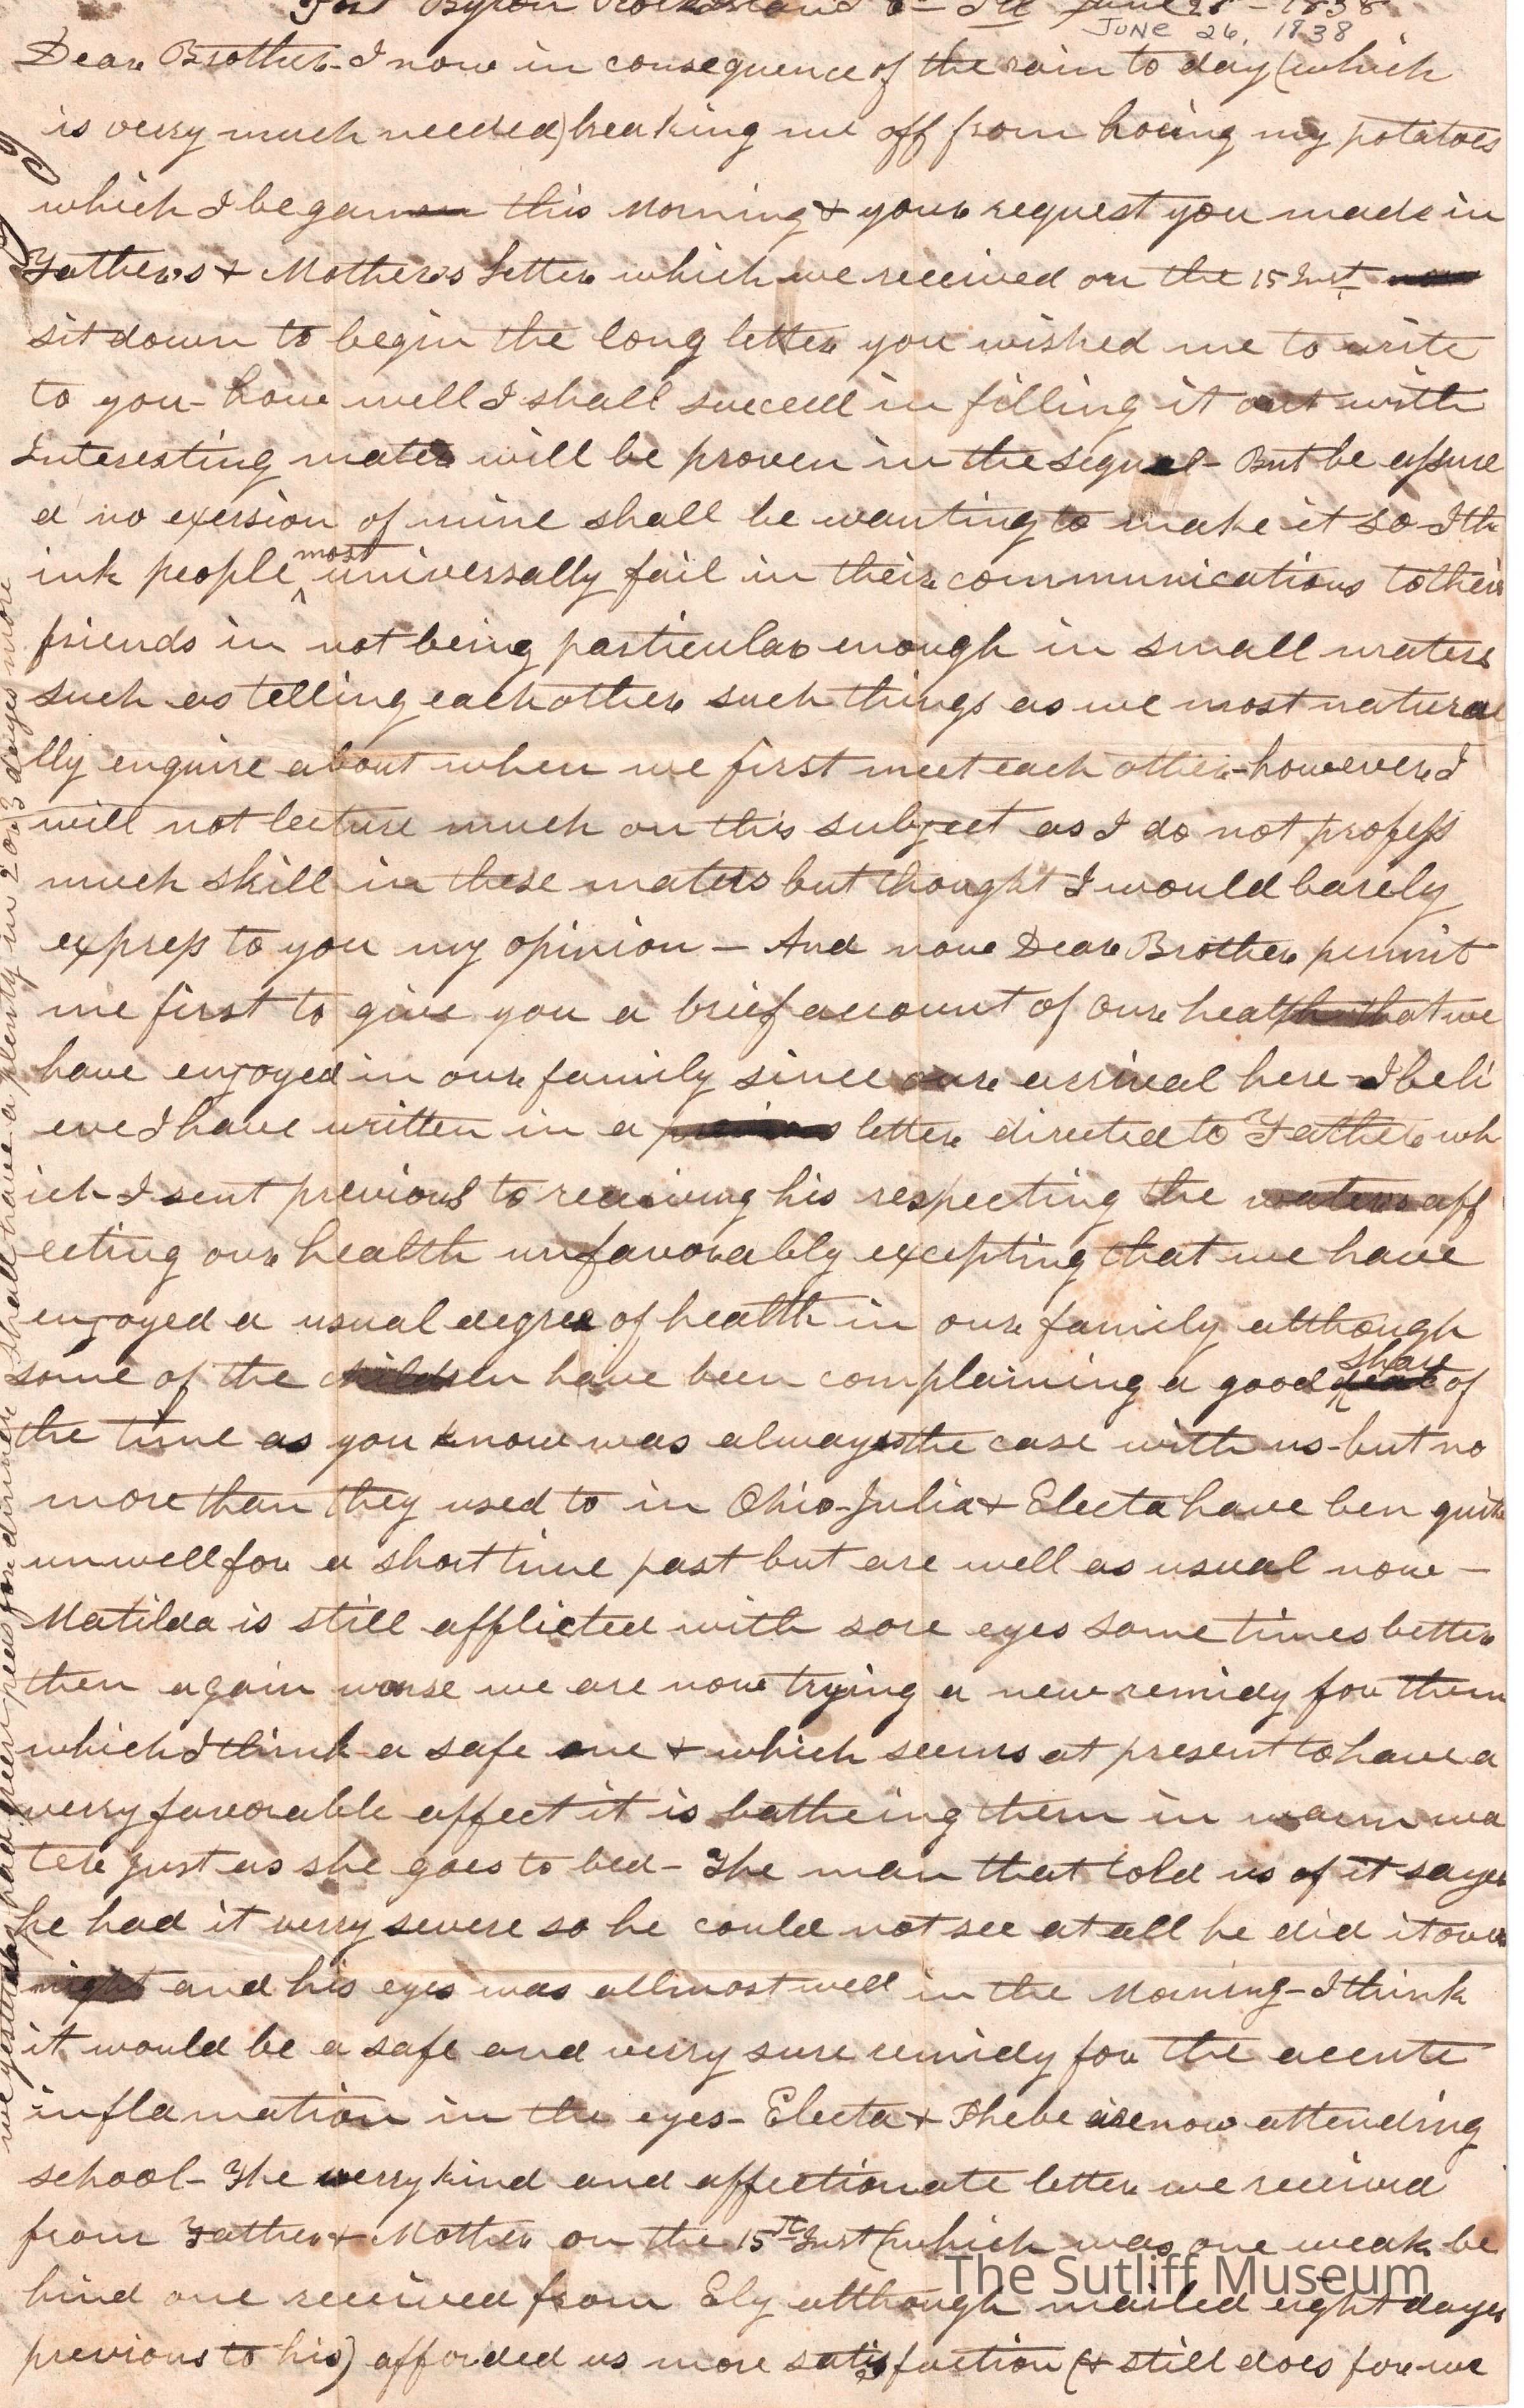 Port Byron Rock Island Co Ill June 26 - 1838
JUNE 26, 1838
Dear Brother - I now in consequence of the rain to day (which
is verry much needed) breaking me off from hoeing my potatoes
which I began this Morning & your request you made in
Father's & Mothers Letter which we received on the 15 Inst
sit down to begin the long letter you wished me to write
to you - how well I shall succeed in filling it out with
Interesting mater will be proven in the sequel - But be assure
d no exersion of mine shall be wanting to make it so I th
ink people most universally fail in their communications to their
friends in not being particular enough in small maters
such as telling each other such things as we most natural
lly enquire about when we first meet each other - however I
will not lecture much on this subject as I do not profess
much skill in these maters but thought I would barely
express to you my opinion - And now Dear Brother permit
me first to give you a brief account of our health that we
have enjoyed in our family since our arrival here - I beli
eve I have written in a letter directed to Father wh
ich I sent previous to receiving his respecting the waters aff
ecting our health unfavorably excepting that we have
enjoyed a usual degree of health in our family although
some of the children have been complaining a good share of
the time as you know was always the case with us - but no
more than they used to in Ohio - Julia & Electa have ben quite
unwell for a short time past but are well as usual now -
Matilda is still afflicted with sore eyes some times better
then again worse we are now trying a new remidy for them
which I think a safe one & which seems at present to have a
verry favorable affect it is batheing them in warm wa
ter just as she goes to bed - The man that told us of it sayes
he had it verry severe so he could not see at all he did it over
night and his eyes was allmost well in the Morning - I think
it would be a safe and verry sure remidy for the accute
inflamation in the eyes - Electa & Phebe are now attending
school - The verry kind and affectionate letter we received
from Father & Mother on the 15th Inst (which was one weak be
hind one received from Ely although mailed eight dayes
previous to his) afforded us more satisfaction (& still does for we
we yesterday had green peas for dinner shall have a plenty in 2 or 3 dayes more
The Sutliff Museum